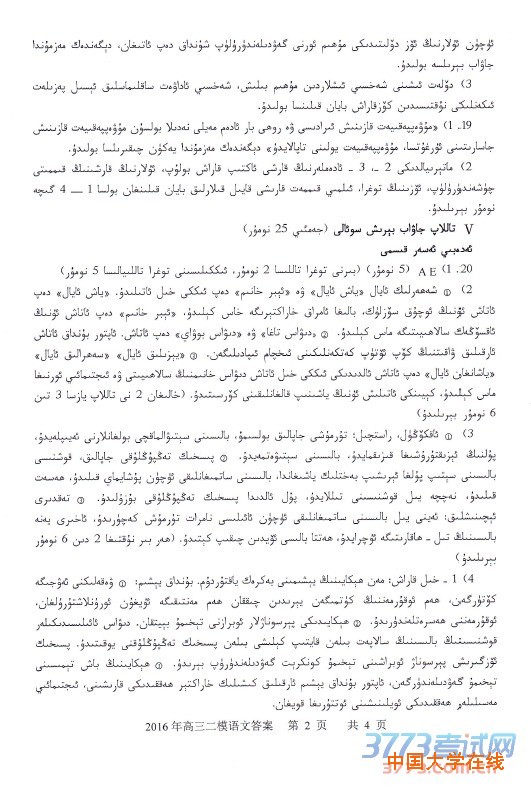 ئۈچۈن ئۇلارنىڭ ئۆز دۆلىتىدىكى مۇھىم ئورنى گەۋدىلەندۈرۈلۈپ شۇنداق دەپ ئاتىغان، دېگەندەك مەزمۇندا
جاۋاب بېرىلسە بولىدۇ.
3) دۆلەت ئىشىنى شەخسىي ئىشلاردىن مۇھىم بىلىش، شەخسىي ئاداۋەت ساقلىماسلىق ئېسىل پەزىلەت
ئىكەنلىكى نۇقتىسىدىن كۆزقاراش بايان قىلىنسا بولىدۇ.
19. 1) «مۇۋەپپەقىيەت قازىنىش ئىرادىسى ۋە روھى بار ئادەم مەيلى نەدىلا بولسۇن مۇۋەپپەقىيەت قازىنىش
جاسارىتىنى ئۇرغۇتسا، مۇۋەپپەقىيەت يولىنى تاپالايدۇ» دېگەندەك مەزمۇندا يەكۈن چىقىرىلسا بولىدۇ.
2) ماتېرىيالدىكى 2 -، 3 - ئادەملەرنىڭ قارشى ئاكتىپ قاراش بولۇپ، ئۇلارنىڭ قارشىنىڭ قىممىتى
چۈشەندۈرۈلۈپ، ئۆزىنىڭ توغرا، ئىلمىي قىممەت قارشى قايىل قىلارلىق بايان قىلىنغان بولسا 1 — 4 گىچە
نومۇر بېرىلىدۇ.
V تاللاپ جاۋاب بېرىش سوئالى (جەمئىي 25 نومۇر)
ئەدەبىي ئەسەر قىسمى
20. 1) A E (5 نومۇر) (بىرنى توغرا تاللىسا 2 نومۇر، ئىككىلىسىنى توغرا تاللىيالىسا 5 نومۇر)
2) ① شەھەرلىك ئايال «ياش ئايال» ۋە «ئېبر خانىم» دەپ ئىككى خىل ئاتىلىدۇ. «ياش ئايال» دەپ
ئاتاش ئۇنىڭ ئوچۇق سۆزلۈك، بالىغا ئامراق خاراكتېرىگە خاس كېلىدۇ، «ئېبر خانىم» دەپ ئاتاش ئۇنىڭ
ماس كېلىدۇ. ② «دىۋاس تاغا» ۋە «دىۋاس بوۋاي» دەپ ئاتاش، ئاپتور بۇنداق ئاتاش
ئارقىلىق ۋاقىتنىڭ كۆپ ئۆتۈپ كەتكەنلىكىنى ئىخچام ئىپادىلىگەن. ③ «يېزىلىق ئايال» «سەھرالىق ئايال»
«ياشانغان ئايال» دەپ ئاتاش ئالدىدىكى ئىككى خىل ئاتاش دىۋاس خانىمنىڭ سالاھىيىتى ۋە ئىجتىمائىي ئورنىغا
ماس كېلىدۇ، كېيىنكى ئاتىلىش ئۇنىڭ ياشىنىپ قالغانلىقىنى كۆرسىتىدۇ. (خالىغان 2 نى تاللاپ يازسا 3 تىن
6 نومۇر بېرىلىدۇ)
3) ① ئاقكۆڭۈل، راستچىل؛ تۇرمۇشى جاپالىق بولسىمۇ، بالىسىنى سېتىۋالماقچى بولغانلارنى ئەيىپلەيدۇ،
پۇلنىڭ ئېزىقتۇرۇشىغا قىزىقمايدۇ، بالىسىنى سېتىۋەتمەيدۇ. ② پىسخىك تەڭپۇڭلۇقى جاپالىق، قوشنىسى
بالىسىنى سېتىپ پۇلغا ئېرىشىپ بەختلىك ياشىغاندا، بالىسىنى ساتمىغانلىقى ئۈچۈن پۇشايماي قىلىدۇ، ھەسەت
قىلىدۇ، نەچچە يىل قوشنىسىنى تىللايدۇ، پۇل ئالدىدا پىسخىك تەڭپۇڭلۇقى بۇزۇلىدۇ. ③ تەقدىرى
ئېچىنىشلىق: ئەينى يىل بالىسىنى ساتمىغانلىقى ئۈچۈن ئائىلىسى نامرات تۇرمۇش كەچۈرىدۇ، ئاخىرى يەنە
بالىسىنىڭ تىل - ھاقارىتىگە ئۇچرايدۇ، ھەتتا بالىسى ئۆيدىن چىقىپ كېتىدۇ. (ھەر بىر نۇقتىغا 2 دىن 6 نومۇر
بېرىلىدۇ)
4) 1 - خىل قاراش: مەن ھېكايىنىڭ يېشىمىنى بەكرەك ياقتۇردۇم. بۇنداق يېشىم: ① ۋەقەلىكنى ئەۋجىگە
كۆتۈرگەن، ھەم ئوقۇرمەننىڭ كۈتمىگەن يېرىدىن چىققان ھەم مەنتىقىگە ئۇيغۇن ئورۇنلاشتۇرۇلغان،
ئوقۇرمەننى ھەسرەتلەندۈرىدۇ. ② ھېكايىدىكى پېرسوناژلار ئوبرازىنى تېخىمۇ بېيىتقان. دىۋاس ئائىلىسىدىكىلەر
قوشنىسىنىڭ بالىسىنىڭ سالاپەت بىلەن قايتىپ كېلىشى بىلەن پىسخىك تەڭپۇڭلۇقىنى يوقىتىدۇ، پىسخىك
ئۆزگىرىش پېرسوناژ ئوبرازىنى تېخىمۇ كونكرېت گەۋدىلەندۈرۈپ بېرىدۇ. ③ ھېكايىنىڭ باش تېمىسىنى
تېخىمۇ گەۋدىلەندۈرگەن، ئاپتور بۇنداق يېشىم ئارقىلىق كىشىلىك خاراكتېر ھەققىدىكى قارىشىنى، ئىجتىمائىي
مەسىلىلەر ھەققىدىكى ئويلىنىشىنى ئوتتۇرىغا قويغان.
2016 年高三二模语文答案 第 2 页 共 4 页
3773考试网
中国大学在线